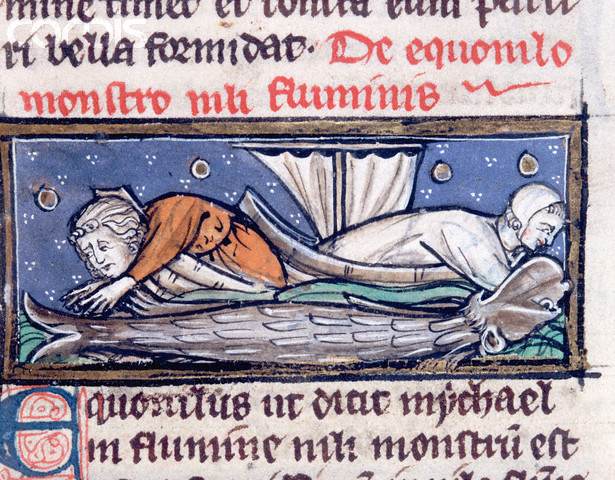 mine timet et
ri bella formidat. De equonilo
monstro nili fluminis
Equonilus ut dicit mychael
in flumine nili monstrū est